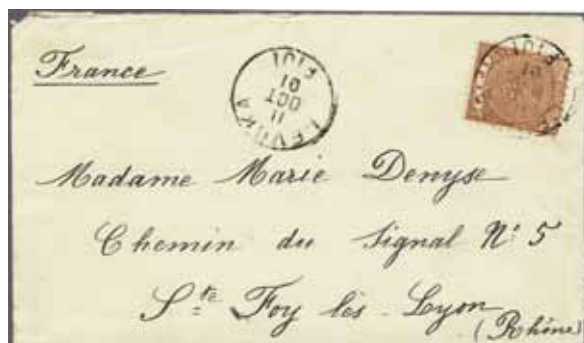 France
LEVUKA
11
OCT
01
FIJI
Madame Marie Denyse
Chemin du Signal N° 5
Ste Foy lès-Lyon
(Rhône)